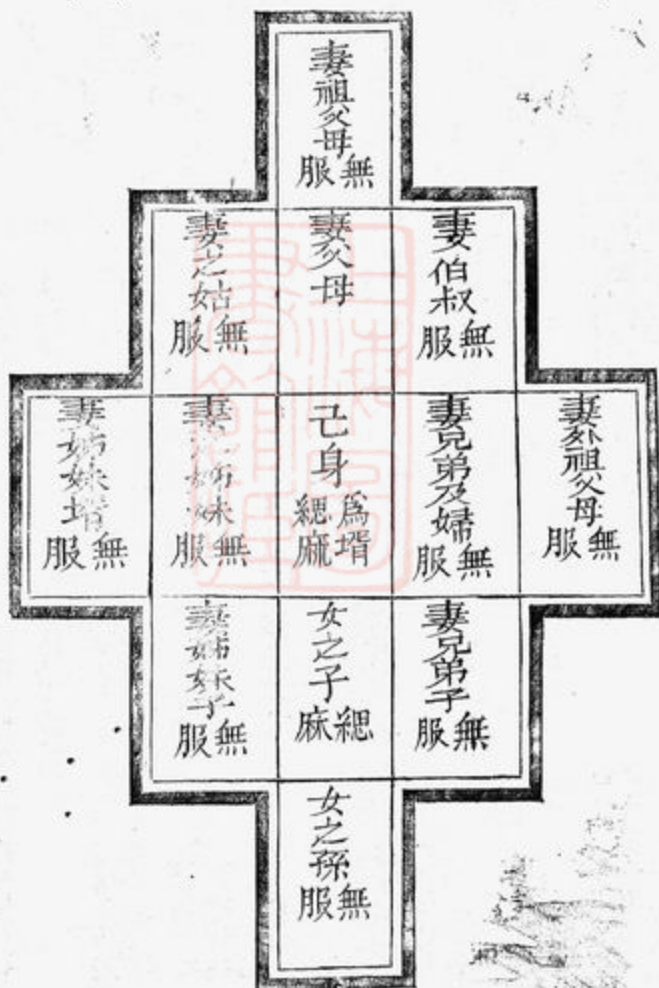 妻祖父母無服
妻伯叔無服
妻父母
妻之姑無服
妻外祖父母無服
妻兄弟及婦無服
己身為壻緦麻
妻姊妹無服
妻姊妹壻無服
妻兄弟子無服
女之子緦麻
妻姊妹子無服
女之孫無服
上海圖書館藏